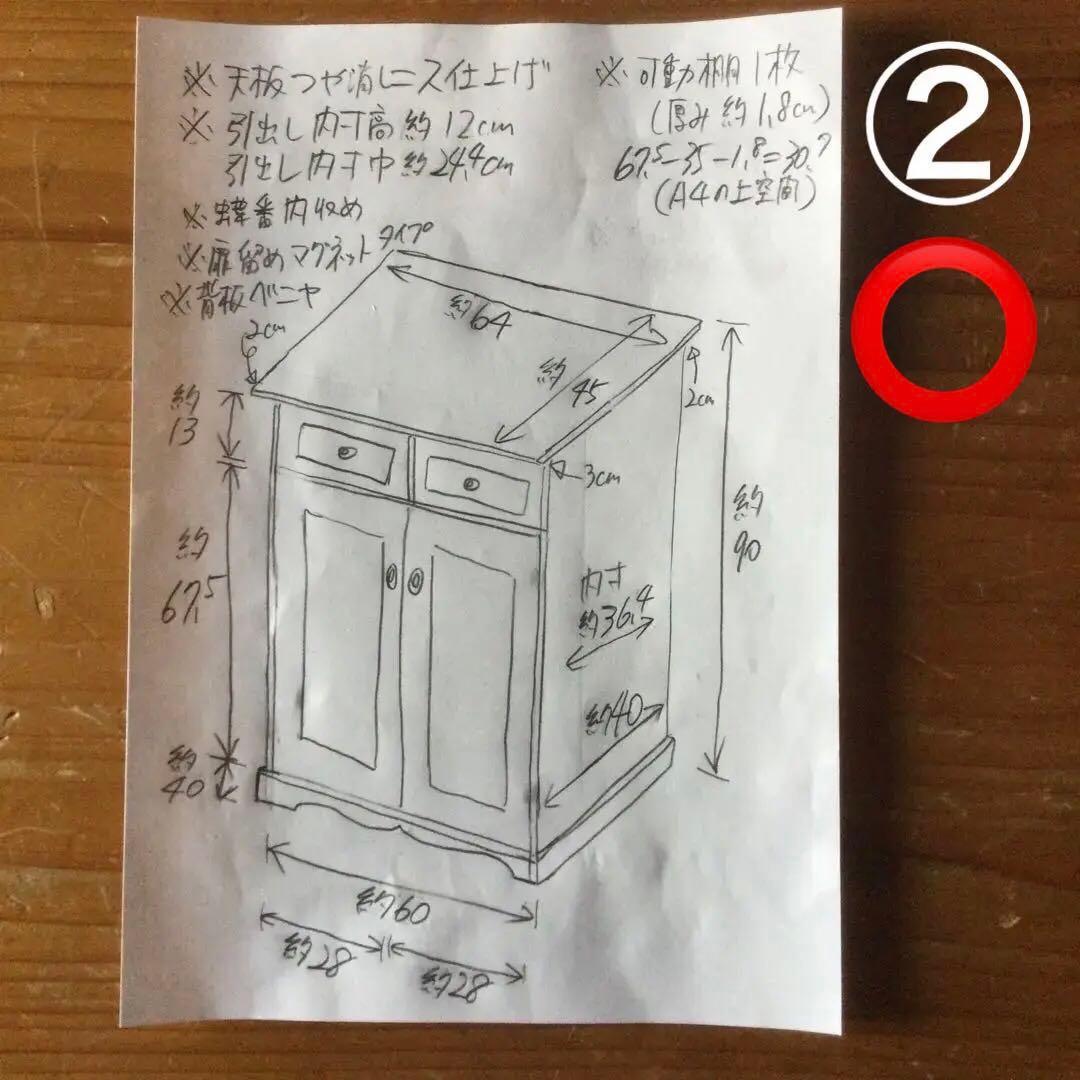 ※ 天板つや消しニス仕上げ
※ 引出し内寸高 約12cm
引出し内寸巾 約24,4cm
※ 蝶番内収め
※ 扉留めマグネットタイプ
※ 背板ベニヤ
※ 可動棚1枚
(厚み約1,8cm)
67,5-35-1,8=30,7
(A4の上空間)
②
2cm
約64
約
45
2cm
約
13
3cm
約
90
約
67,5
内寸
約36,4
約40
約
40
約60
約28
約28